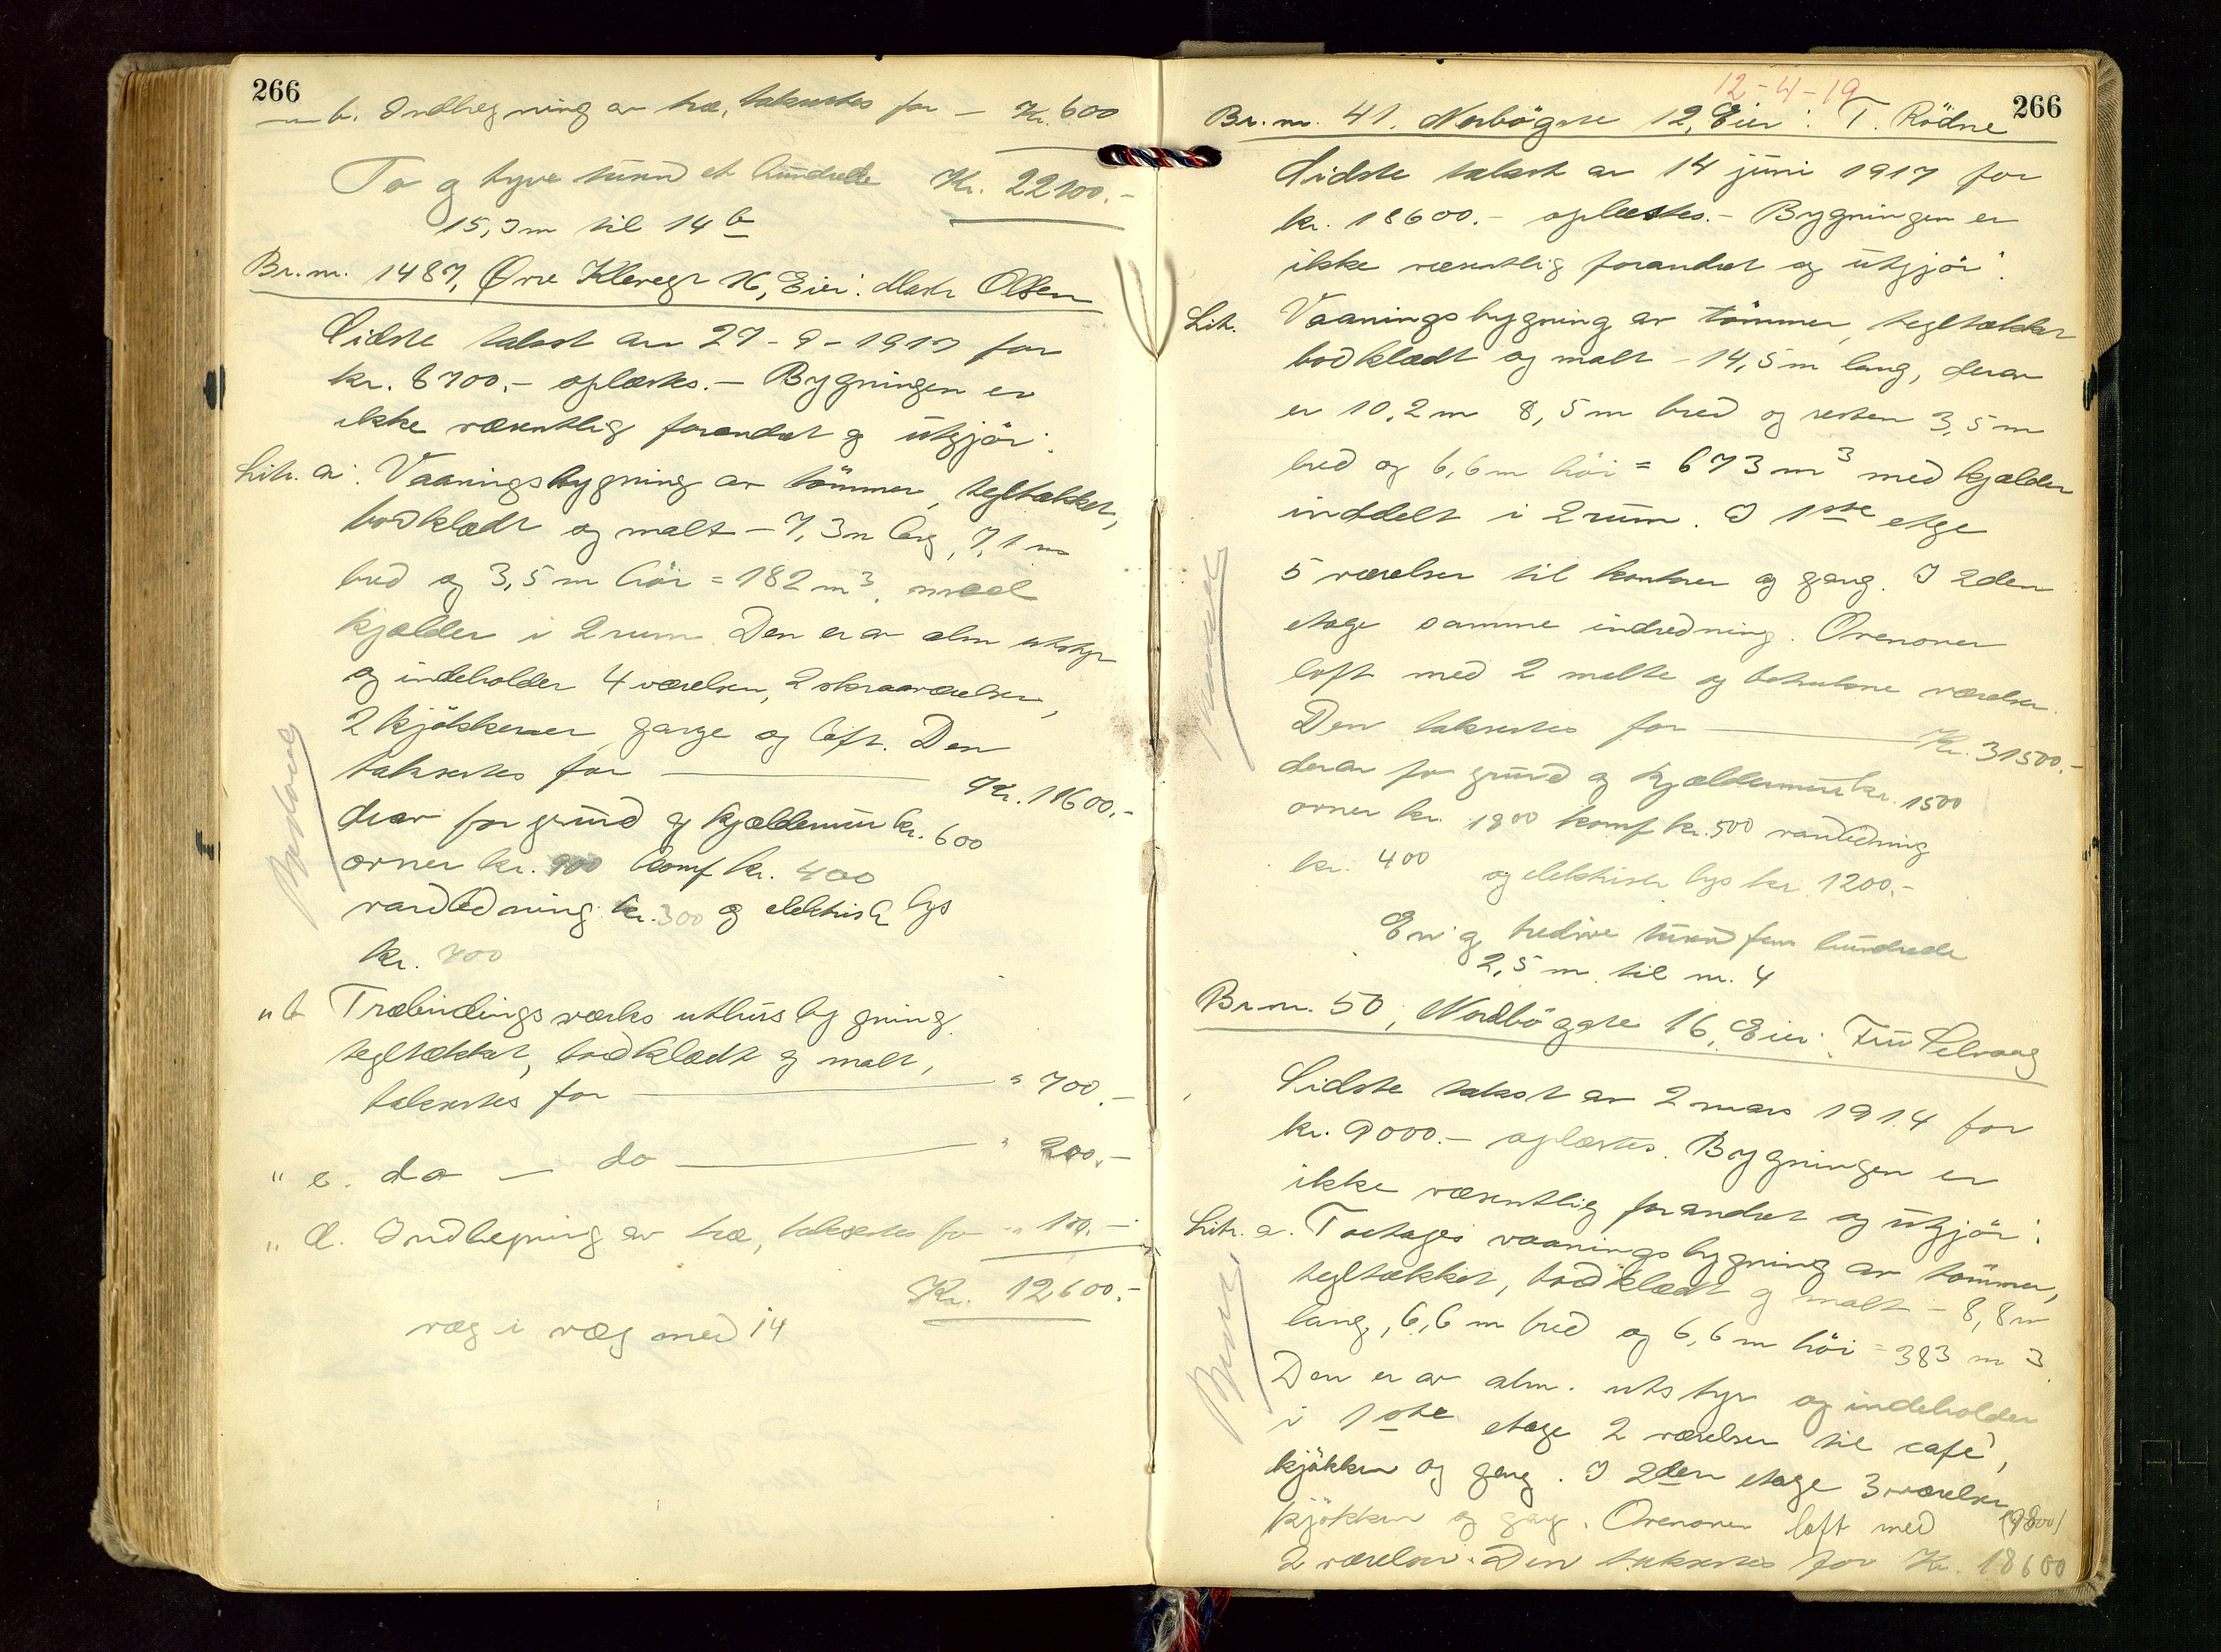 266
" b. Indhegning av træ, takseres for – Kr. 600
To og tyve tusind et hundrede Kr. 22100.-
15,0m til 14 b
Br.nr. 1487, Øvre Klevegt 16, Eier: Olsen
Sidste takst av 27-9-1917 for
kr. 6700.- oplæstes. – Bygningen er
ikke væsentlig forandret og utgjör:
Litr. a: Vaaningsbygning av tömmer, tegltækket,
bordklædt og malt – 7,3m lang, 7,1 m
bred og 3,5 m höi = 182 m³, med
kjælder i 2 rum. Den er av alm utstyr
og indeholder 4 værelser, 2 skraaværelser,
2 kjökkener, gange og loft. Den
takseres for Kr. 11600.-
derav for grund og kjældermur kr. 600
ovner kr. 900 komf kr. 400
vandledning kr. 300 og elektrisk lys
kr. 700
" b Træbindingsverks uthusbygning
tegltækket, bordklædt og malt,
takseres for " 700.-
" c. do – do " 200.-
" d. Indhegning av træ, takseres for " 100.-
Kr. 12600.-
væg i væg med 14
12-4-19
266
Br.nr. 41. Norbögate 12, Eier: T. Rödne
Sidste takst av 14 juni 1917 for
kr. 18600.- oplæstes. – Bygningen er
ikke væsentlig forandret og utgjör:
Litr. Vaaningsbygning av tömmer, tegltækket
bordklædt og malt – 14,5m lang, derav
er 10,2m 8,5m bred og resten 3,5m
bred og 6,6m höi = 673 m³ med kjælder
inddelt i 2 rum. I 1ste etge
5 værelser til kontorer og gang. I 2den
etage samme indredning. Ovenover
loft med 2 malte og betrukne værelser.
Den takseres for Kr. 31500.-
derav for grund og kjældermur kr. 1500
ovner kr. 1800 komf kr. 500 vandledning
kr. 400 og elektrisk lys kr 1200.-
En og tredive tusind fem hundrede
2,5 m. til nr. 4
Br.nr. 50, Nordbögate 16, Eier: Fru Selvaag
Sidste takst av 2 mars 1914 for
kr. 9000.- oplæstes. Bygningen er
ikke væsentlig forandret og utgjör:
Litr. a. Toetages vaaningsbygning av tömmer,
tegltækket, bordklædt og malt – 8,8m
lang, 6,6 m bred og 6,6 m höi = 383 m³
Den er av alm. utstyr og indeholder
i 1ste etage 2 værelser til café,
kjökken og gang. I 2den etage 3 værelser
kjökken og gang. Ovenover loft med (9800)
2 værelser. Den takseres for Kr. 18600